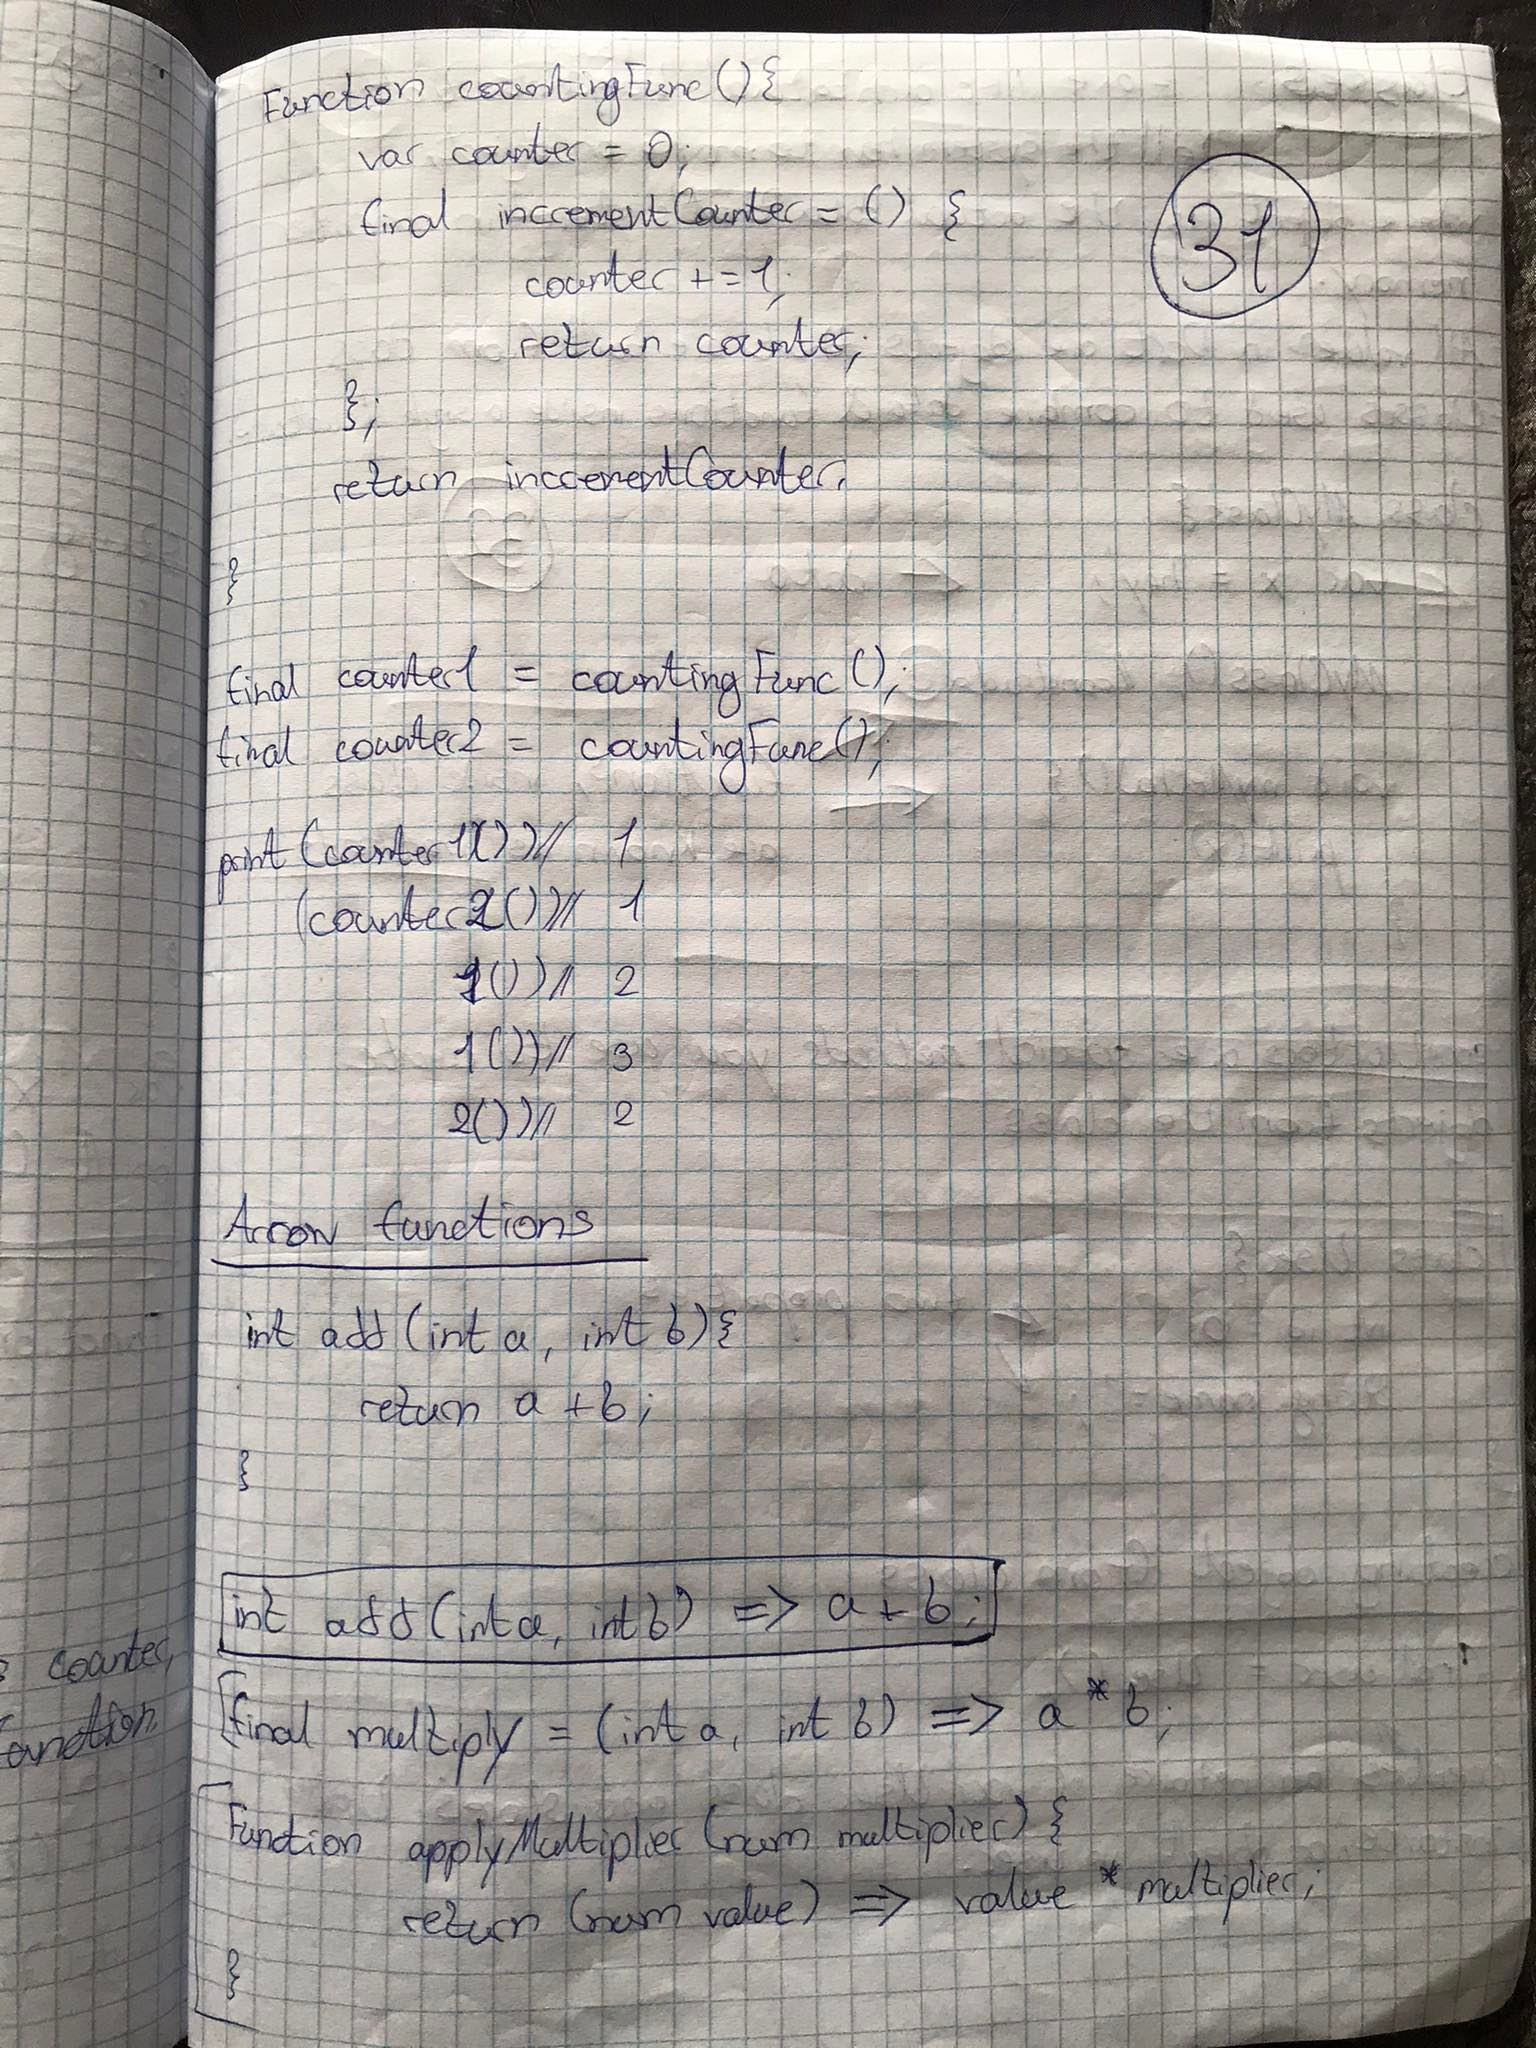 Function countingFunc(){
var counter = 0;
final incrementCounter = () {
31
counter += 1;
return counter;
};
return incrementCounter,
}
final counter1 = countingFunc();
final counter2 = countingFunc();
print(counter1()) // 1
(counter2()) // 1
1()) // 2
1()) // 3
2()) // 2
Arrow functions
int add (int a, int b){
return a + b;
}
int add (int a, int b) => a + b;
final multiply = (int a, int b) => a * b;
Function applyMultiplier (num multiplier) {
return (num value) => value * multiplier;
}
counter,
function